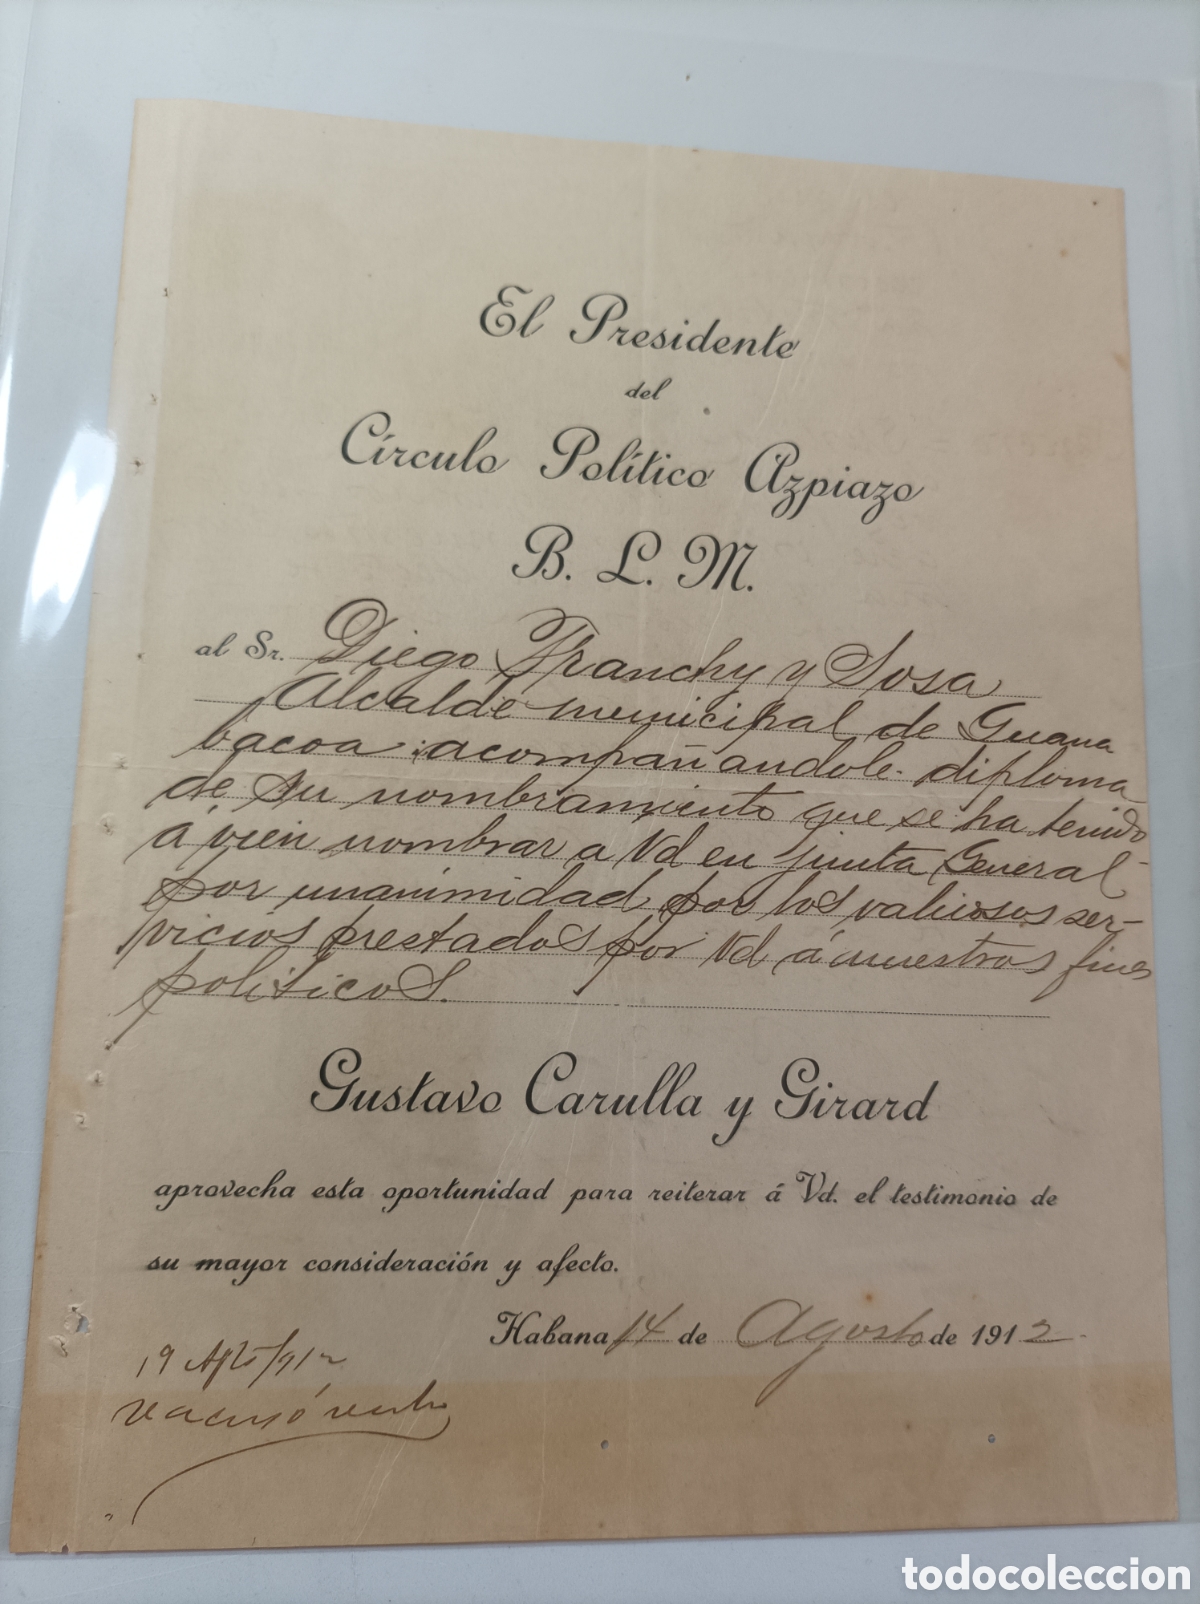 El Presidente
del
Círculo Político Azpiazo
B. L. M.
al Sr. Diego Franchy y Sosa
Alcalde municipal de Guana
bacoa acompañandole diploma
de su nombramiento que se ha tenido
á vien nombrar a Vd en junta General
por unanimidad por los valiosos ser-
vicios prestados por Vd á nuestros fines
politicos.
Gustavo Carulla y Girard
aprovecha esta oportunidad para reiterar á Vd. el testimonio de
su mayor consideración y afecto.
Habana 14 de Agosto de 1912
19
todocoleccion